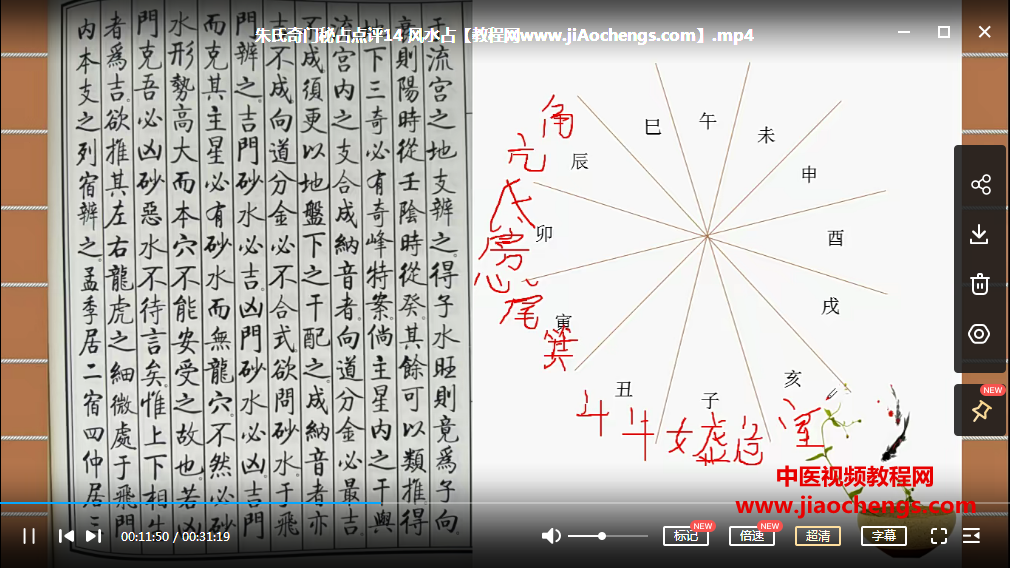 朱氏奇门秘占点评14 风水占【教程网www.jiAochengs.com】.mp4
流宫之地支辨之。得子水旺則竟為子向
則陽時從壬陰時從癸。其餘可以類推得
地下三奇必有奇峰特案。倘主星内之干與
流宮内之支合成納音者。向道分金必最吉
不成須更以地盤下之干配之。成納音者亦
吉。不成向道分金必不合式。欲問砂水。于飛
門辨之。吉門砂水必吉。凶門砂水必凶。吉門
而克其主星必有砂水而無龍穴。不然必砂
水形勢高大而本穴不能安受之故也。若凶
門克吾必凶砂惡水不待言矣。惟上下相生
者為吉。欲推其左右龍虎之細微處于飛門
内本支之列宿辨之。孟季居二宿四仲居三
巳
午
未
申
酉
戌
亥
子
丑
寅
卯
辰
角
亢
氐
房
心
尾
箕
斗
牛
女
虚
危
室
中医视频教程网
www.jiaochengs.com
NEW
00:11:50 / 00:31:19
标记
NEW
倍速
NEW
超清
字幕